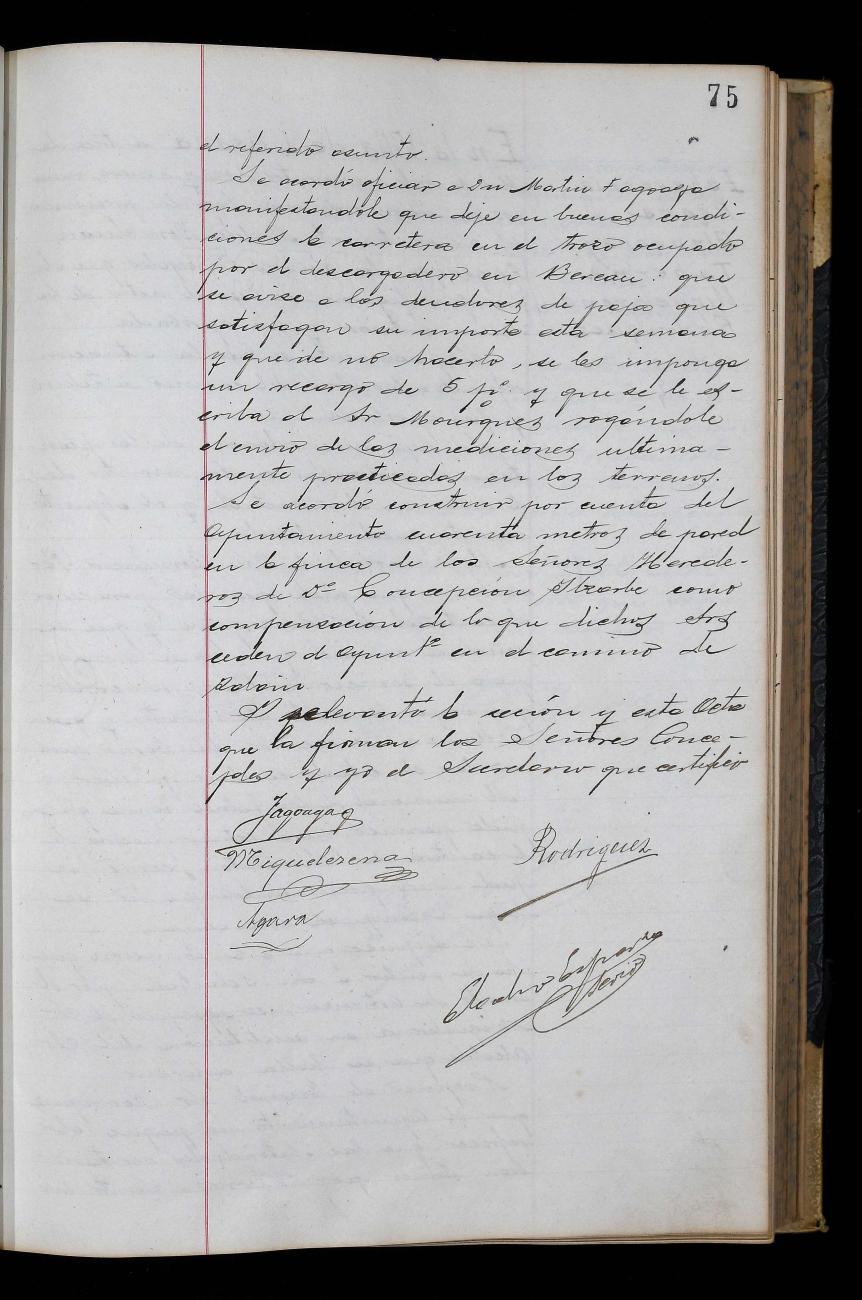 75
el referido asunto.
Se acordó oficiar a Dn Martin Fagoaga
manifestandole que deje en buenas condi-
ciones la carretera en el trozo ocupado
por el descargadero en Bereau: que
se avise a los deudores de paja que
satisfagan su importe esta semana
y que de no hacerlo, se les imponga
un recargo de 5 pº y que se le es-
criba al Sr Mourguez rogándole
el envio de las mediciones ultima-
mente practicadas en los terrenos.
Se acordó construir por cuenta del
Ayuntamiento cuarenta metros de pared
en la finca de los Señores Herede-
ros de Dª Concepción como
compensación de lo que dichos Srs
ceden al Ayuntº en el camino de
Zdoin
Y se levantó la seción y esta Acta
que la firman los Señores Conce-
jales y yo el Secretario que certifico
Fagoaga
Miquelezena
Rodriguez
Agara
Eleadro Esparza
Serio